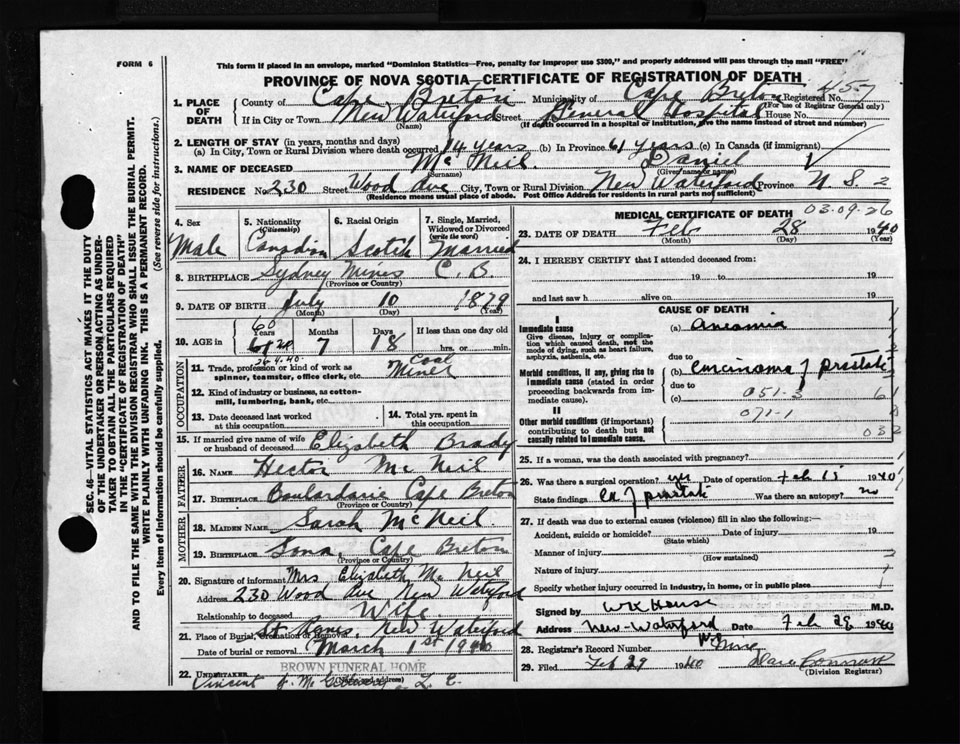 FORM 6
This form if placed in an envelope, marked "Dominion Statistics—Free, penalty for improper use $300," and properly addressed will pass through the mail "FREE"
PROVINCE OF NOVA SCOTIA—CERTIFICATE OF REGISTRATION OF DEATH
457
1. PLACE OF DEATH
County of Cape Breton Municipality of Cape Breton Registered No.
(For use of Registrar General only)
If in City or Town New Waterford Street General Hospital House No.
(Name) (If death occurred in a hospital or institution, give the name instead of street and number)
2. LENGTH OF STAY (in years, months and days)
(a) In City, Town or Rural Division where death occurred 14 years (b) In Province 61 years (c) In Canada (if immigrant)
3. NAME OF DECEASED Mc Neil Daniel
(Surname) (Given name or names)
RESIDENCE No. 230 Street Wood Ave City, Town or Rural Division New Waterford Province N. S. 2
(Residence means usual place of abode. Post Office Address for residents in rural parts not sufficient)
4. Sex
Male
5. Nationality (Citizenship)
Canadian
6. Racial Origin
Scotch
7. Single, Married, Widowed or Divorced (write the word)
Married
8. BIRTHPLACE Sydney Mines C. B.
(Province or Country)
9. DATE OF BIRTH July 10 1879
(Month) (Day) (Year)
10. AGE in
Years Months Days If less than one day old
60 7 18 hrs. or min.
26.4.40.
OCCUPATION
11. Trade, profession or kind of work as spinner, teamster, office clerk, etc. Coal Miner
12. Kind of industry or business, as cotton-mill, lumbering, bank, etc.
13. Date deceased last worked at this occupation
14. Total yrs. spent in this occupation
15. If married give name of wife or husband of deceased Elizabeth Brady
FATHER
16. NAME Hector Mc Neil
17. BIRTHPLACE Boulardarie Cape Breton
(Province or Country)
MOTHER
18. MAIDEN NAME Sarah McNeil
19. BIRTHPLACE Iona, Cape Breton
(Province or Country)
20. Signature of informant Mrs Elizabeth Mc Neil
Address 230 Wood Ave New Waterford
Relationship to deceased Wife
21. Place of Burial, Cremation or Removal St Agnes, New Waterford
Date of burial or removal March 1st 1940
BROWN FUNERAL HOME
22. UNDERTAKER
(Name and address)
Vincent
MEDICAL CERTIFICATE OF DEATH
03-09-26
23. DATE OF DEATH Feb 28 1940
(Month) (Day) (Year)
24. I HEREBY CERTIFY that I attended deceased from:
19 to 19
and last saw h alive on 19
CAUSE OF DEATH
I
Immediate cause
Give disease, injury or complication which caused death, not the mode of dying, such as heart failure, asphyxia, asthenia, etc.
(a) Anaemia
due to
Morbid conditions, if any, giving rise to immediate cause (stated in order proceeding backwards from immediate cause).
(b) Carcinoma of Prostate
due to
051-3
(c)
071-1
II
Other morbid conditions (if important) contributing to death but not causally related to immediate cause.
25. If a woman, was the death associated with pregnancy?
26. Was there a surgical operation? yes Date of operation Feb 15 1940
State findings Ca of prostate Was there an autopsy? no
27. If death was due to external causes (violence) fill in also the following:—
Accident, suicide or homicide? Date of injury 19
(State which)
Manner of injury
(How sustained)
Nature of injury
Specify whether injury occurred in industry, in home, or in public place
Signed by WK House M.D.
Address New-Waterford Date Feb 28 1940
28. Registrar's Record Number
29. Filed Feb 29 1940
(Division Registrar)
SEC. 46—VITAL STATISTICS ACT MAKES IT THE DUTY OF THE UNDERTAKER OR PERSON ACTING AS UNDERTAKER TO OBTAIN ALL THE PARTICULARS REQUIRED IN THE "CERTIFICATE OF REGISTRATION OF DEATH"
AND TO FILE THE SAME WITH THE DIVISION REGISTRAR WHO SHALL ISSUE THE BURIAL PERMIT.
WRITE PLAINLY WITH UNFADING INK. THIS IS A PERMANENT RECORD.
Every item of information should be carefully supplied. (See reverse side for instructions.)